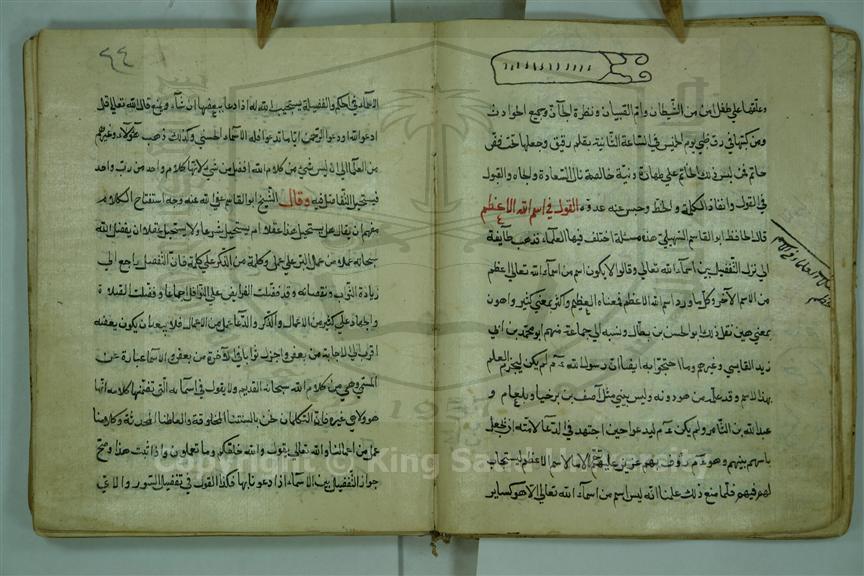 وعلقها على طفل امن من الشيطان وام الصبيان ونظرة الجان وجميع الحوادث
ومن كتبها في رق ظبي يوم الخميس في الساعة الثانية بقلم رقيق وجعلها تحت فص
خاتم فمن لبس ذلك الخاتم على طهارة ونية خالصة نال السعادة والجاه والقبول
في القول وانفاذ الكلمة والحظ وحبس عنه عدوه القول في اسم الله الاعظم
قال الحافظ ابو القاسم السهيلي هذه مسئلة اختلف فيها العلماء فذهب طايفة
الى ترك التفضيل بين اسماء الله تعالى وقالوا لا يكون اسم من اسماء الله تعالى اعظم
من الاسم الاخر وكلما ورد اسم الله الاعظم فمعناه العظيم واكثر بمعنى كثير واهون
بمعنى هين نقل ذلك ابو الحسن بن بطال ونسبه الى جماعة منهم ابو محمد بن ابي
زيد القابسي وغيرهم ومما احتجوا به ايضا ان رسول الله ءم لم يكن ليحرم العلم
بهذا الاسم وقد علمه من هو دونه وليس بنبي مثل آصف بن برخيا وبلعام و
عبد الله بن الثامر ولم يكن ءم ليدعو حين اجتهد في الدعاء لامته ان لا يجعل
باسهم بينهم وهو ءم رؤف بهم عزيز عليه عنتهم الا بالاسم الاعظم ليستجاب
لهم فيهم فلما منع ذلك علمنا انه ليس اسم من اسماء الله تعالى الا هو كساير
٤٤
الاسماء في الحكم والفضيلة يستجيب الله له اذا دعا ببعضها ان شاء وبمنع قال الله تعالى قل
ادعوا الله او ادعوا الرحمن ايا ما تدعوا فله الاسماء الحسنى وكذلك ذهب هؤلاء وغيرهم
من العلماء الى ان ليس شئ من كلام الله افضل من شئ لانها كلام واحد من رب واحد
فيستحيل التفاضل فيه وقال الشيخ ابو القاسم رضي الله عنه وجه استفتاح الكلام
معهم ان يقال هل يستحيل هذا عقلا ام يستحيل شرعا ولا يستحيل عقلا ان يفضل الله
سبحانه عملا من عمل البر على عمل وكلمة من الذكر على كلمة فان التفضيل راجع الى
زيادة الثواب ونقصانه وقد فضلت الفرايض على النوافل اجماعا وفضلت الصلاة
والجهاد على كثير من الاعمال والذكر والدعاء عمل من الاعمال فلا يبعد ان يكون بعضه
اقرب الى الاجابة من بعض واجزل ثوابا في الآخرة من بعض والاسماء عبارة عن
المسمى وهي من كلام الله سبحانه القديم ولا يقول في اسمائه التي تضمنها كلامه انها
هو ولا هي غيره فان تكلمنا نحن بالسنتنا المخلوقة والفاظنا المحدثة وكلامنا
عمل من اعمالنا والله تعالى يقول والله خلقكم وما تعملون واذا ثبت هذا وصح
جواز التفضيل بين الاسماء اذا دعونا بها فكذا القول في تفضيل السور والآي